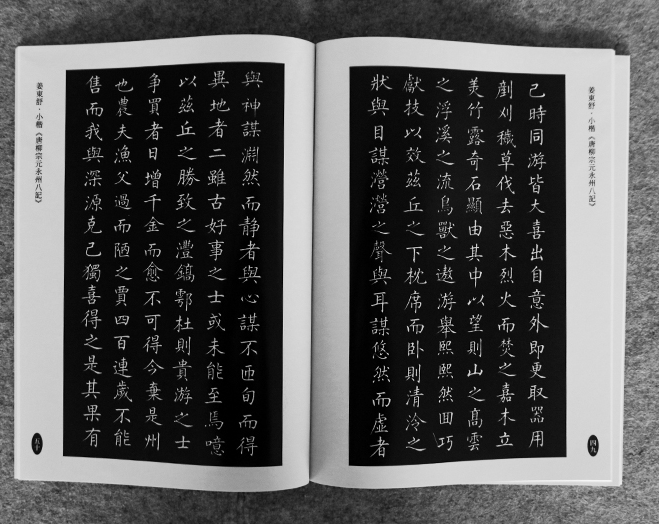 姜東舒·小楷《唐柳宗元永州八記》
己時同游皆大喜出自意外即更取器用
剷刈穢草伐去惡木烈火而焚之嘉木立
美竹露奇石顯由其中以望則山之高雲
之浮溪之流鳥獸之遨游舉熙熙然囬巧
獻技以效茲丘之下枕席而卧則清泠之
狀與目謀瀯瀯之聲與耳謀悠然而虛者
四九
與神謀淵然而静者與心謀不匝旬而得
異地者二雖古好事之士或未能至焉噫
以茲丘之勝致之灃鎬鄠杜則貴游之士
争買者日增千金而愈不可得今棄是州
也農夫漁父過而陋之賈四百連歲不能
售而我與深源克己獨喜得之是其果有
姜東舒·小楷《唐柳宗元永州八記》
五十